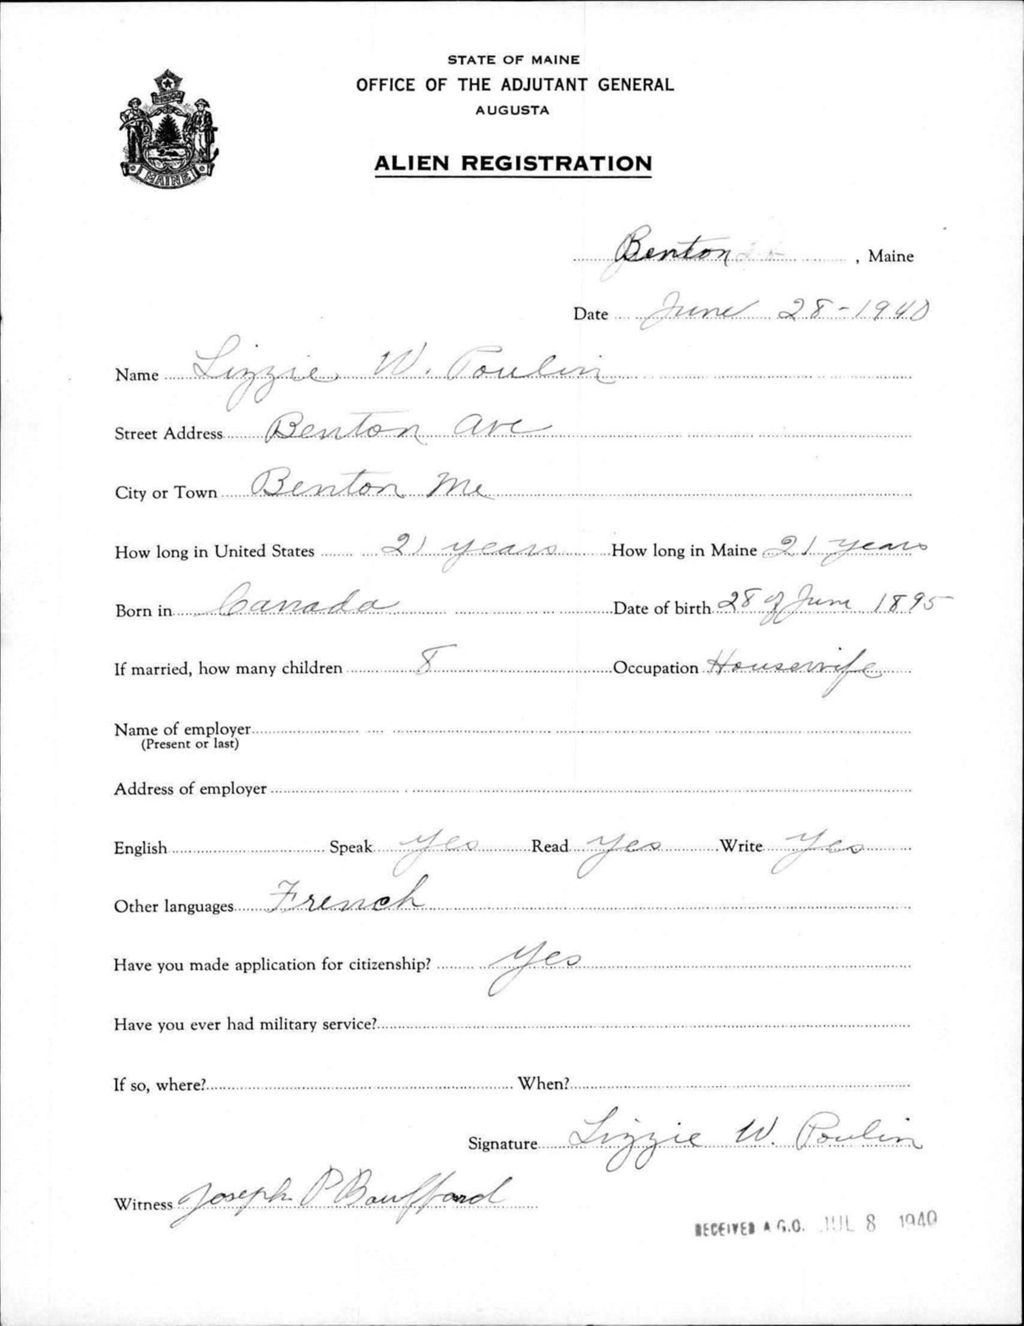 STATE OF MAINE
OFFICE OF THE ADJUTANT GENERAL
AUGUSTA
MAINE
ALIEN REGISTRATION
Benton, Maine
Date June 28-1940
Name Lizzie W. Poulin
Street Address Benton Ave
City or Town Benton Me
How long in United States 21 years How long in Maine 21 years
Born in Canada Date of birth 28 of June 1895
If married, how many children 8 Occupation Housewife
Name of employer
(Present or last)
Address of employer
English Speak yes Read yes Write yes
Other languages French
Have you made application for citizenship? yes
Have you ever had military service?
If so, where? When?
Signature Lizzie W. Poulin
Witness Joseph P Bouffard
RECEIVED A.G.O. JUL 8 1940